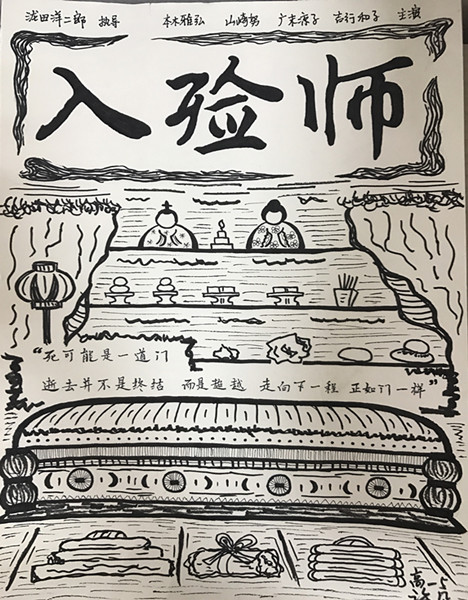 泷田洋二郎 执导 本木雅弘 山崎努 广末凉子 吉行和子 主演
入殓师
“死可能是一道门
逝去并不是终结 而是超越 走向下一程 正如门一样”
高一